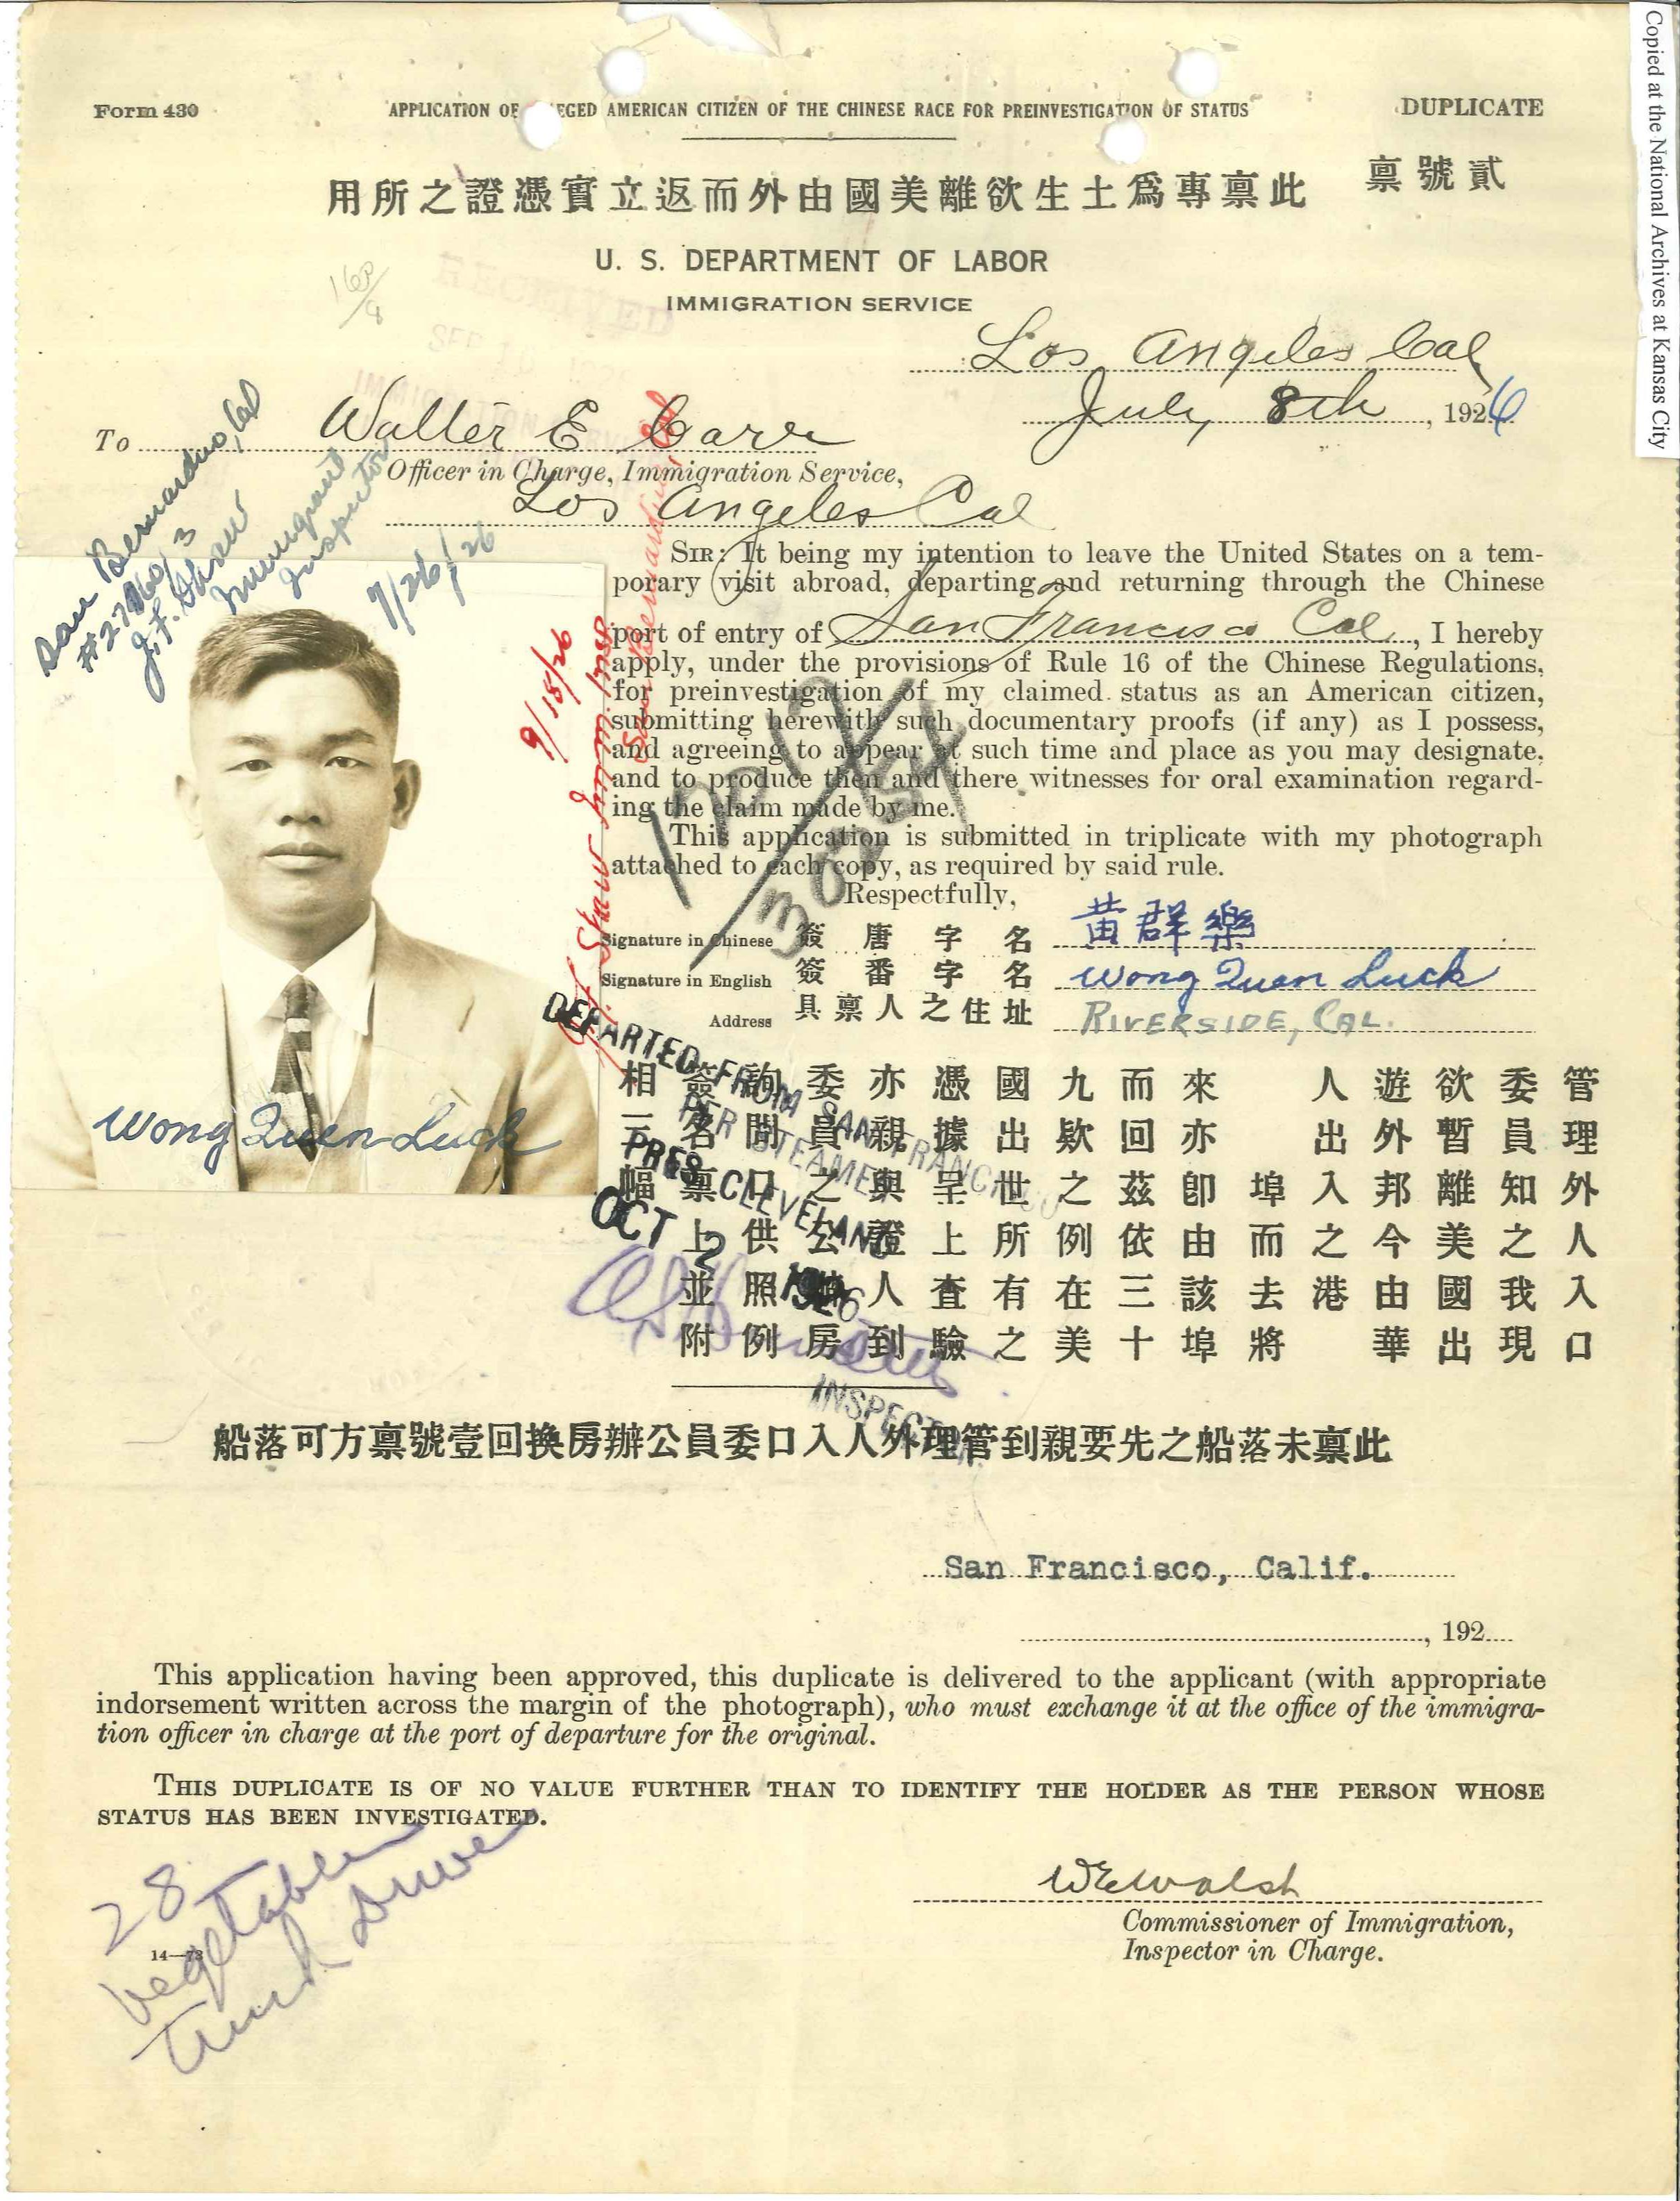 Copied at the National Archives at Kansas City
Form 430
APPLICATION OF EGED AMERICAN CITIZEN OF THE CHINESE RACE FOR PREINVESTIGATION OF STATUS
DUPLICATE
貳號禀
此禀專爲土生欲離美國由外而返立實憑證之所用
U. S. DEPARTMENT OF LABOR
IMMIGRATION SERVICE
RECEIVED
Los Angeles Cal
July 8th, 1926
To Walter E Carr
Officer in Charge, Immigration Service,
Los Angeles Cal
San Bernardino, Cal
J. F. Shaw
Immigrant
Inspector
7/26/26
SIR: It being my intention to leave the United States on a tem-
porary visit abroad, departing and returning through the Chinese
port of entry of San Francisco Cal, I hereby
apply, under the provisions of Rule 16 of the Chinese Regulations,
for preinvestigation of my claimed status as an American citizen,
submitting herewith such documentary proofs (if any) as I possess,
and agreeing to appear at such time and place as you may designate,
and to produce then and there witnesses for oral examination regard-
ing the claim made by me.
This application is submitted in triplicate with my photograph
attached to each copy, as required by said rule.
Respectfully,
9/18/26
J. F. Shaw Imm. Insp
San Bernardino, Cal
Signature in Chinese 簽唐字名 黄群樂
Signature in English 簽番字名 Wong Quen Luck
Address 具禀人之住址 RIVERSIDE, CAL.
Wong Quen Luck
管理外人入口
委員知之我現
欲暫離美國出
遊外邦今由華
人出入之港
埠而去將
來亦卽由該埠
而回茲依三十
九欵之例在美
國出世所有之
憑據呈上查驗
亦親與證人到
委員之公辦房
詢問口供照例
簽名禀上並附
相三幅
DEPARTED FROM SAN FRANCISCO
PER STEAMER
PRES CLEVELAND
OCT 2 1926
INSPECTOR
此禀未落船之先要親到管理外人入口委員公辦房換回壹號禀方可落船
San Francisco, Calif.
, 192
This application having been approved, this duplicate is delivered to the applicant (with appropriate
indorsement written across the margin of the photograph), who must exchange it at the office of the immigra-
tion officer in charge at the port of departure for the original.
THIS DUPLICATE IS OF NO VALUE FURTHER THAN TO IDENTIFY THE HOLDER AS THE PERSON WHOSE
STATUS HAS BEEN INVESTIGATED.
WEWalsh
Commissioner of Immigration,
Inspector in Charge.
28
Vegetable
Truck Driver
14—73